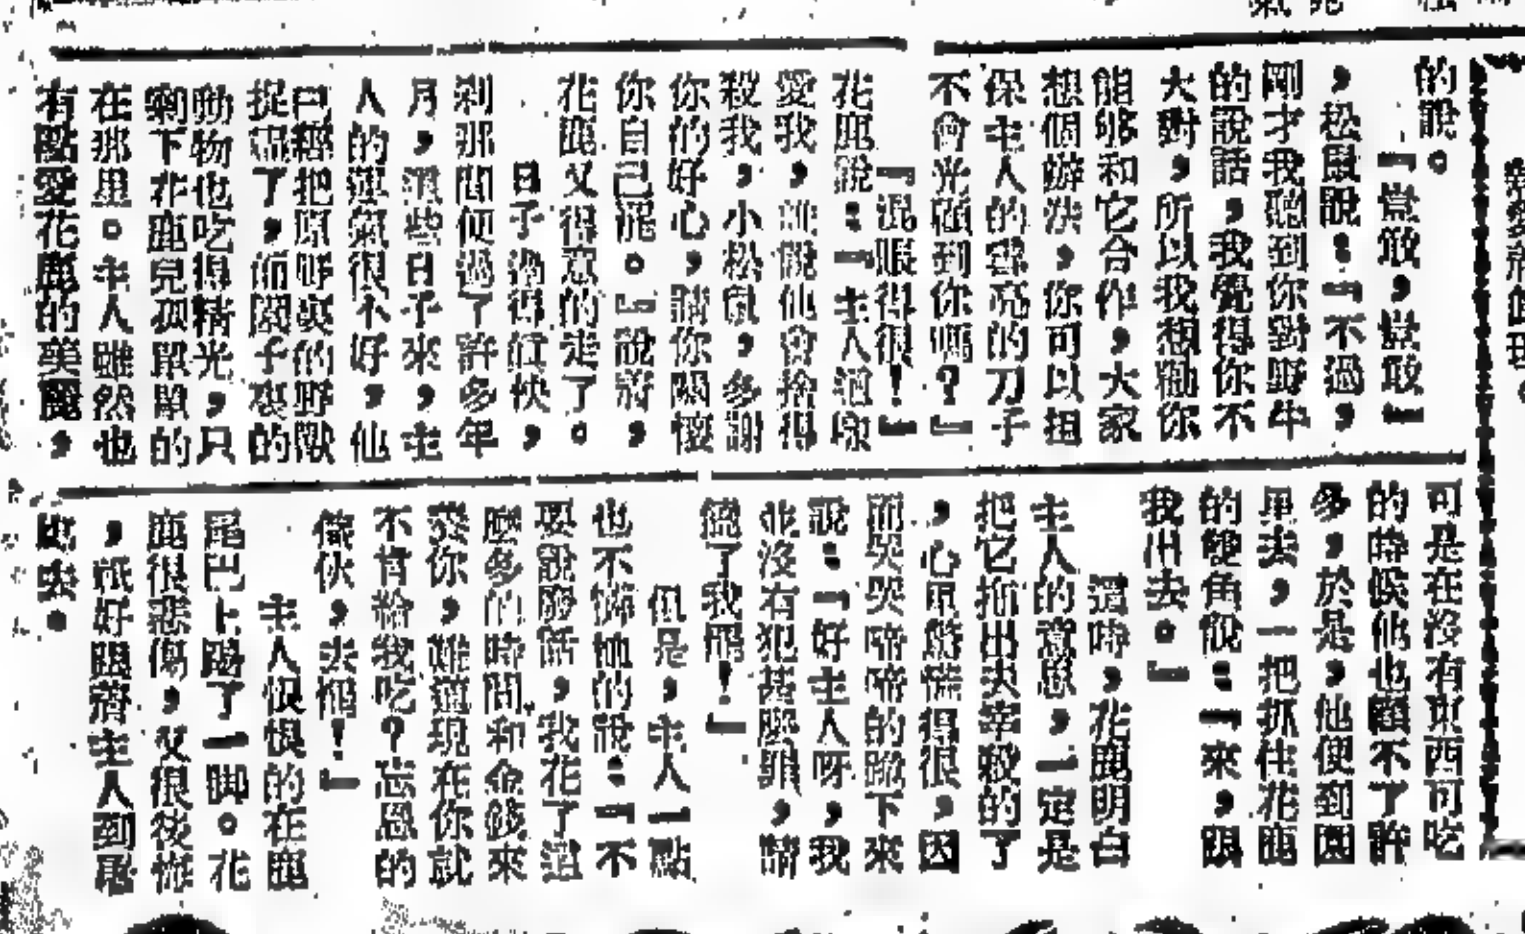 的說。
「當散，當散」
，松鼠說：「不過，
剛才我聽到你對野牛
的說話，我覺得你不
大對，所以我想勸你
能够和它合作，大家
想個辦法，你可以担
保主人的雪亮的刀子
不會光顧到你嗎？』
『混賬得很！」
花鹿說：「主人這麽
愛我，誰說他會捨得
殺我，小松鼠，多謝
你的好心，請你關懷
你自己罷。』說着，
花鹿又得意的走了。
日子過得眞快，
刹那間便過了許多年
月，這些日子來，主
人的運氣很不好，他
已經把原野裏的野獸
捉淸了，而園子裏的
動物也吃得精光，只
剩下花鹿兒孤單單的
在那里。主人雖然也
有點愛花鹿的美麗，
可是在沒有東西可吃
的時候他也顧不了許
多，於是，他便到園
里去，一把抓住花鹿
的雙角說：「來，跟
我出去。」
這時，花鹿明白
主人的意思，一定是
把它拖出去宰殺的了
，心里驚慌得很，因
而哭哭啼啼的跪下來
說：「好主人呀，我
並沒有犯甚麽罪，請
饒了我罷！」
但是，主人一點
也不憐恤的說：「不
要說廢話，我花了這
麽多的時間和金錢來
養你，難道現在你就
不肯給我吃？忘恩的
傢伙，去罷！」
主人恨恨的在鹿
尾巴上踢了一脚。花
鹿很悲傷，又很後悔
，祇好跟着主人到屠
塲去。